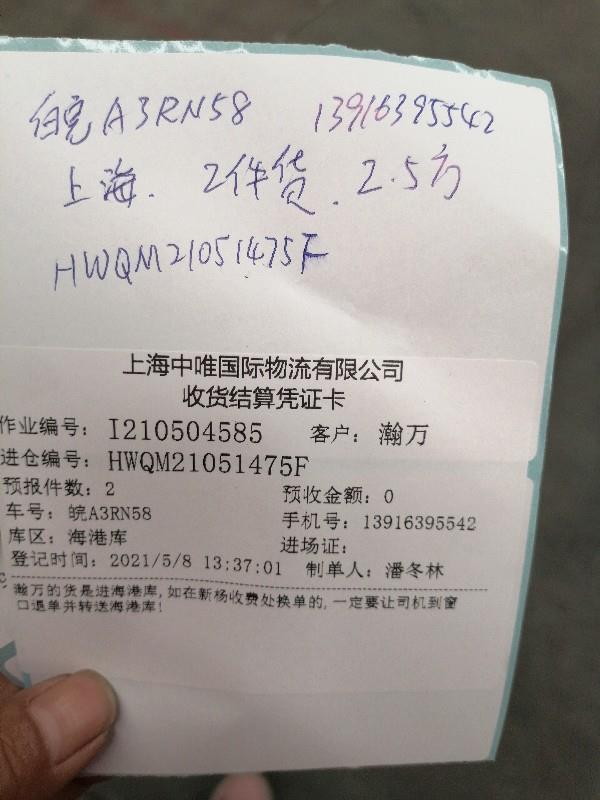 皖A3RN58 13916395542
上海. 2件货. 2.5方
HWQM21051475F
上海中唯国际物流有限公司
收货结算凭证卡
作业编号: I210504585 客户: 瀚万
进仓编号: HWQM21051475F
预报件数: 2 预收金额: 0
车号: 皖A3RN58 手机号: 13916395542
库区: 海港库 进场证:
登记时间: 2021/5/8 13:37:01 制单人: 潘冬林
瀚万的货是进海港库, 如在新杨收费处换单的, 一定要让司机到窗
口退单并转送海港库!